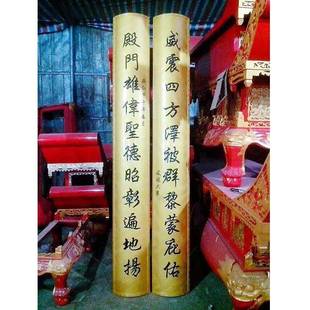 威震四方澤被群黎蒙庇佑
殿門雄偉聖德昭彰遍地揚